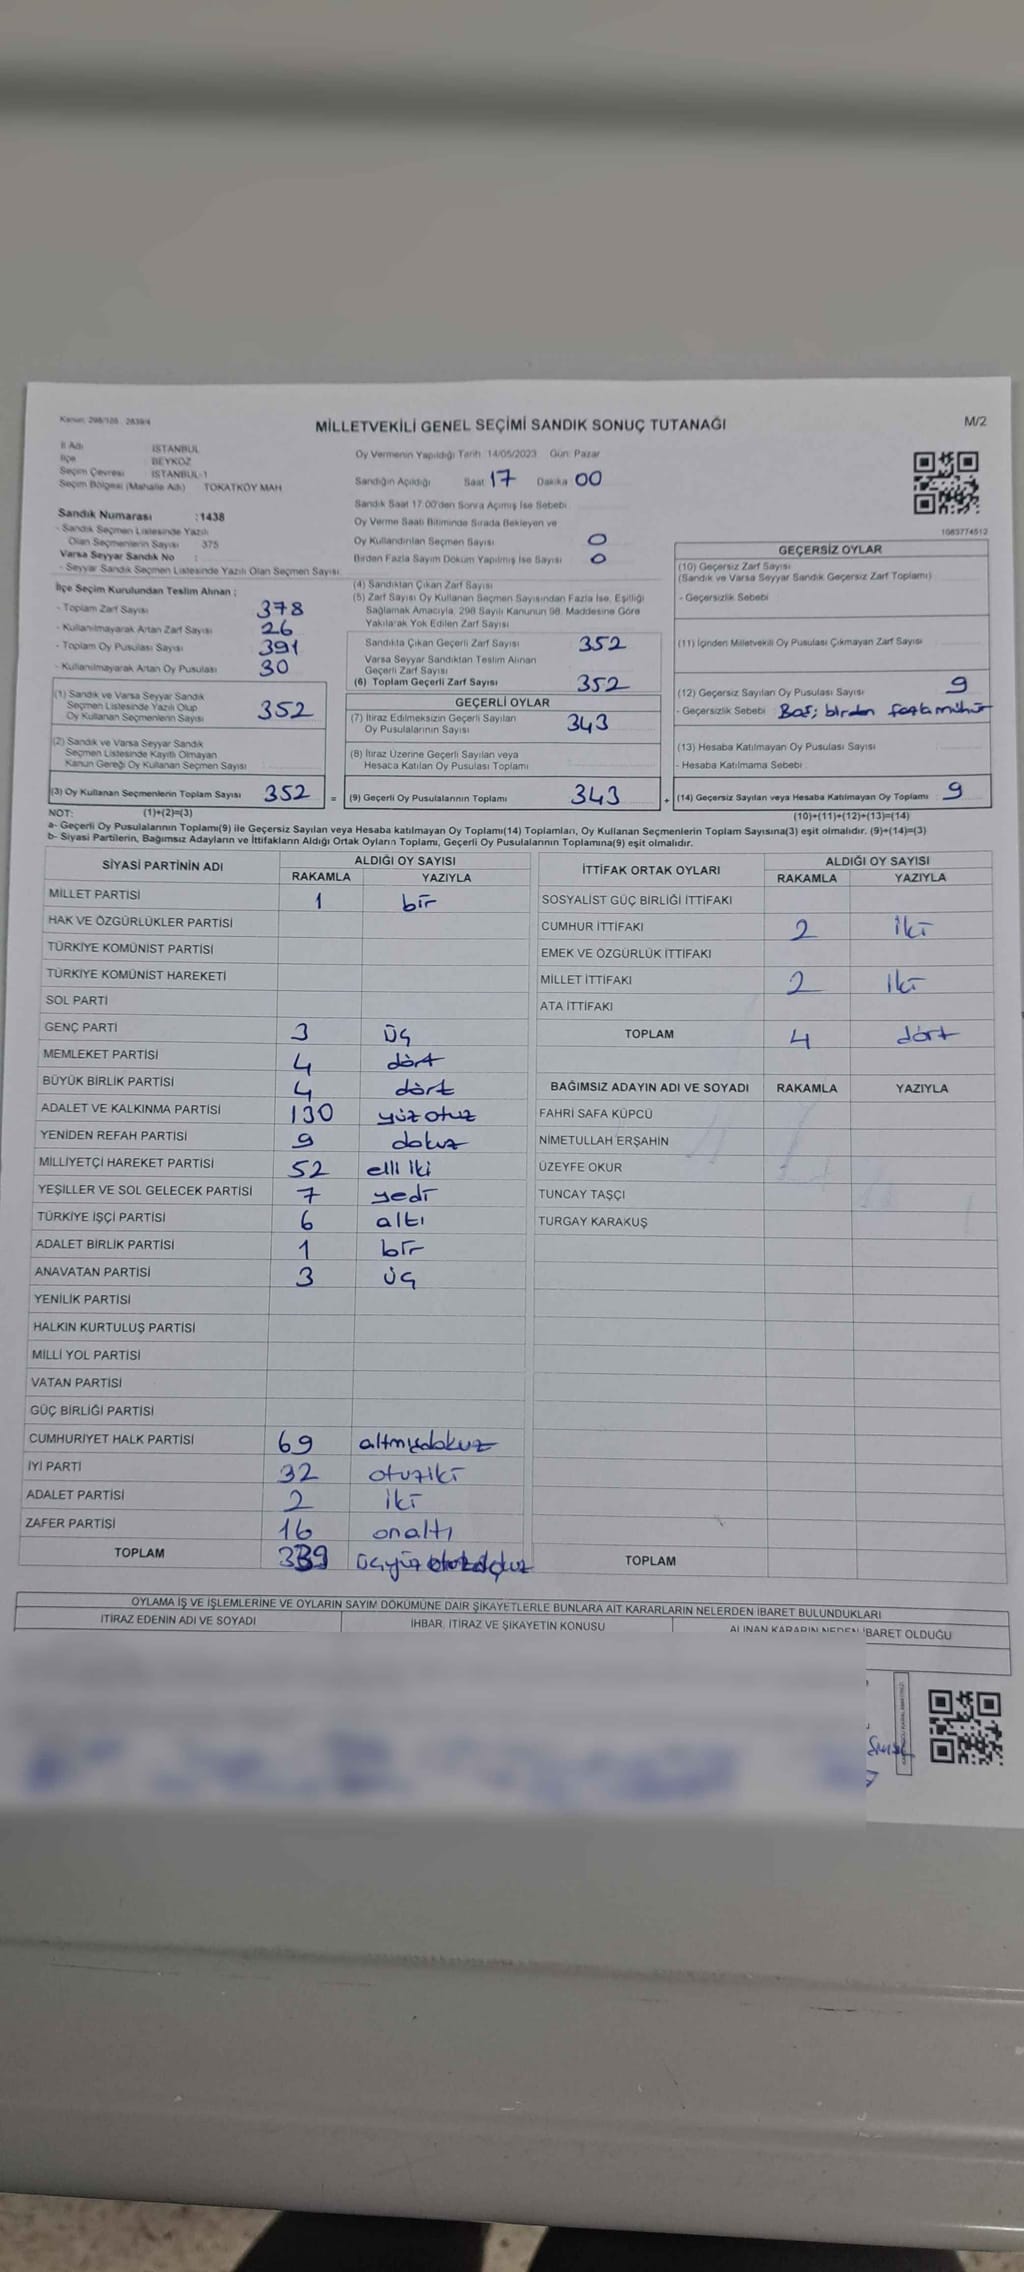 Kanun: 298/105 , 2839/4
MİLLETVEKİLİ GENEL SEÇİMİ SANDIK SONUÇ TUTANAĞI
M/2
İl Adı İSTANBUL
İlçe BEYKOZ
Seçim Çevresi İSTANBUL-1
Seçim Bölgesi (Mahalle Adı) TOKATKÖY MAH
Sandık Numarası :1438
- Sandık Seçmen Listesinde Yazılı
Olan Seçmenlerin Sayısı 375
Varsa Seyyar Sandık No :
- Seyyar Sandık Seçmen Listesinde Yazılı Olan Seçmen Sayısı
Oy Vermenin Yapıldığı Tarih: 14/05/2023 Gün: Pazar
Sandığın Açıldığı Saat 17 Dakika 00
Sandık Saat 17:00'den Sonra Açılmış İse Sebebi
Oy Verme Saati Bitiminde Sırada Bekleyen ve
Oy Kullandırılan Seçmen Sayısı 0
Birden Fazla Sayım Döküm Yapılmış İse Sayısı 0
1063774512
İlçe Seçim Kurulundan Teslim Alınan ;
- Toplam Zarf Sayısı 378
- Kullanılmayarak Artan Zarf Sayısı 26
- Toplam Oy Pusulası Sayısı 391
- Kullanılmayarak Artan Oy Pusulası 30
(1) Sandık ve Varsa Seyyar Sandık
Seçmen Listesinde Yazılı Olup
Oy Kullanan Seçmenlerin Sayısı 352
(2) Sandık ve Varsa Seyyar Sandık
Seçmen Listesinde Kayıtlı Olmayan
Kanun Gereği Oy Kullanan Seçmen Sayısı
(3) Oy Kullanan Seçmenlerin Toplam Sayısı 352 =
(4) Sandıktan Çıkan Zarf Sayısı
(5) Zarf Sayısı Oy Kullanan Seçmen Sayısından Fazla İse, Eşitliği
Sağlamak Amacıyla, 298 Sayılı Kanunun 98. Maddesine Göre
Yakılarak Yok Edilen Zarf Sayısı
Sandıkta Çıkan Geçerli Zarf Sayısı 352
Varsa Seyyar Sandıktan Teslim Alınan
Geçerli Zarf Sayısı
(6) Toplam Geçerli Zarf Sayısı 352
GEÇERLİ OYLAR
(7) İtiraz Edilmeksizin Geçerli Sayılan
Oy Pusulalarının Sayısı 343
(8) İtiraz Üzerine Geçerli Sayılan veya
Hesaca Katılan Oy Pusulası Toplamı
(9) Geçerli Oy Pusulalarının Toplamı 343 +
GEÇERSİZ OYLAR
(10) Geçersiz Zarf Sayısı
(Sandık ve Varsa Seyyar Sandık Geçersiz Zarf Toplamı)
- Geçersizlik Sebebi
(11) İçinden Milletvekili Oy Pusulası Çıkmayan Zarf Sayısı
(12) Geçersiz Sayılan Oy Pusulası Sayısı 9
- Geçersizlik Sebebi : Boş; birden fazla mühür
(13) Hesaba Katılmayan Oy Pusulası Sayısı
- Hesaba Katılmama Sebebi
(14) Geçersiz Sayılan veya Hesaba Katılmayan Oy Toplamı 9
NOT: (1)+(2)=(3) (10)+(11)+(12)+(13)=(14)
a- Geçerli Oy Pusulalarının Toplamı(9) ile Geçersiz Sayılan veya Hesaba katılmayan Oy Toplamı(14) Toplamları, Oy Kullanan Seçmenlerin Toplam Sayısına(3) eşit olmalıdır. (9)+(14)=(3)
b- Siyasi Partilerin, Bağımsız Adayların ve İttifakların Aldığı Ortak Oyların Toplamı, Geçerli Oy Pusulalarının Toplamına(9) eşit olmalıdır.
SİYASİ PARTİNİN ADI ALDIĞI OY SAYISI
RAKAMLA YAZIYLA
MİLLET PARTİSİ 1 bir
HAK VE ÖZGÜRLÜKLER PARTİSİ
TÜRKİYE KOMÜNİST PARTİSİ
TÜRKİYE KOMÜNİST HAREKETİ
SOL PARTİ
GENÇ PARTİ 3 üç
MEMLEKET PARTİSİ 4 dört
BÜYÜK BİRLİK PARTİSİ 4 dört
ADALET VE KALKINMA PARTİSİ 130 yüz otuz
YENİDEN REFAH PARTİSİ 9 dokuz
MİLLİYETÇİ HAREKET PARTİSİ 52 elli iki
YEŞİLLER VE SOL GELECEK PARTİSİ 7 yedi
TÜRKİYE İŞÇİ PARTİSİ 6 altı
ADALET BİRLİK PARTİSİ 1 bir
ANAVATAN PARTİSİ 3 üç
YENİLİK PARTİSİ
HALKIN KURTULUŞ PARTİSİ
MİLLİ YOL PARTİSİ
VATAN PARTİSİ
GÜÇ BİRLİĞİ PARTİSİ
CUMHURİYET HALK PARTİSİ 69 altmışdokuz
İYİ PARTİ 32 otuziki
ADALET PARTİSİ 2 iki
ZAFER PARTİSİ 16 onaltı
TOPLAM 339 üçyüz
İTTİFAK ORTAK OYLARI ALDIĞI OY SAYISI
RAKAMLA YAZIYLA
SOSYALİST GÜÇ BİRLİĞİ İTTİFAKI
CUMHUR İTTİFAKI 2 iki
EMEK VE ÖZGÜRLÜK İTTİFAKI
MİLLET İTTİFAKI 2 iki
ATA İTTİFAKI
TOPLAM 4 dört
BAĞIMSIZ ADAYIN ADI VE SOYADI RAKAMLA YAZIYLA
FAHRİ SAFA KÜPCÜ
NİMETULLAH ERŞAHİN
ÜZEYFE OKUR
TUNCAY TAŞÇI
TURGAY KARAKUŞ
TOPLAM
OYLAMA İŞ VE İŞLEMLERİNE VE OYLARIN SAYIM DÖKÜMÜNE DAİR ŞİKAYETLERLE BUNLARA AİT KARARLARIN NELERDEN İBARET BULUNDUKLARI
İTİRAZ EDENİN ADI VE SOYADI İHBAR, İTİRAZ VE ŞİKAYETİN KONUSU ALINAN KARARIN NEDEN İBARET OLDUĞU